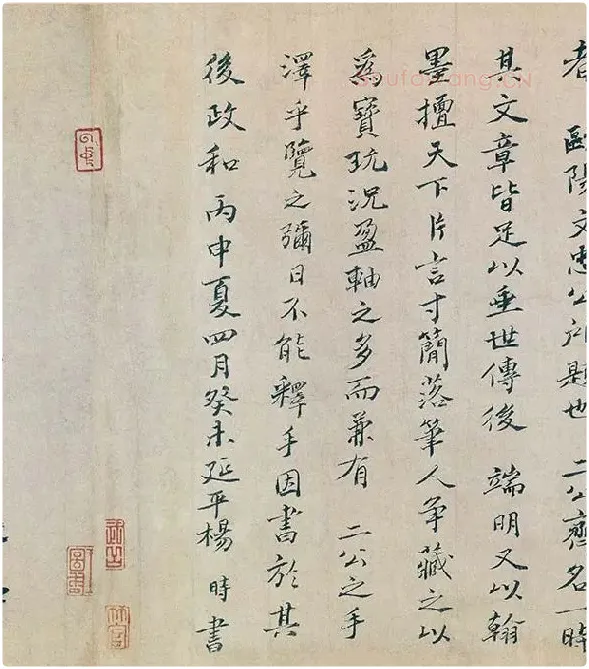 者 歐陽文忠公所題也 二公齊名一時
其文章皆足以垂世傳後 端明又以翰
墨擅天下片言寸簡落筆人爭藏之以
為寶玩況盈軸之多而兼有 二公之手
澤乎覽之彌日不能釋手因書於其
後政和丙申夏四月癸未延平楊 時書